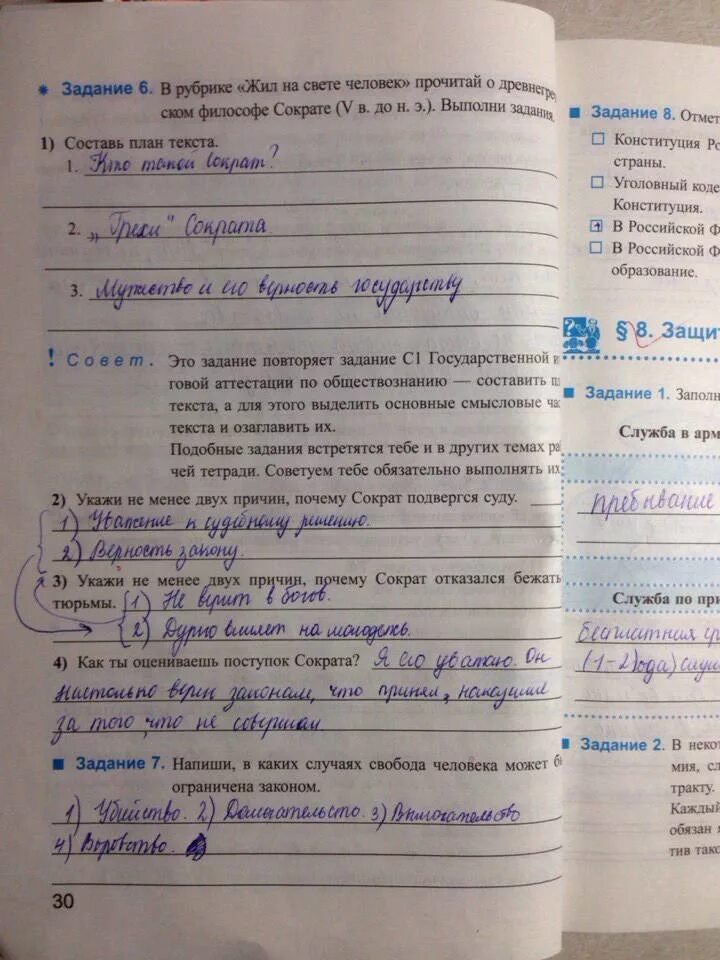 Задание 6. В рубрике «Жил на свете человек» прочитай о древнегре
ском философе Сократе (V в. до н. э.). Выполни задания.
1) Составь план текста.
1. Кто такой Сократ?
2. „Грехи" Сократа
3. Мужество и его верность государству
! Совет. Это задание повторяет задание С1 Государственной и
говой аттестации по обществознанию — составить п
текста, а для этого выделить основные смысловые час
текста и озаглавить их.
Подобные задания встретятся тебе и в других темах ра
чей тетради. Советуем тебе обязательно выполнять их
2) Укажи не менее двух причин, почему Сократ подвергся суду.
1) Уважение к судебному решению.
2) Верность закону.
3) Укажи не менее двух причин, почему Сократ отказался бежать
тюрьмы. 1) Не верит в богов.
2) Дурно влияет на молодежь.
4) Как ты оцениваешь поступок Сократа? Я его уважаю. Он
настолько верен законам, что принял, наказание
за то, что не совершал
Задание 7. Напиши, в каких случаях свобода человека может б
ограничена законом.
1) Убийство. 2) Домогательство. 3) Вымогательство
4) Воровство.
30
Задание 8. Отмет
Конституция Ро
страны.
Уголовный коде
Конституция.
В Российской Ф
В Российской Ф
образование.
§ 8. Защит
Задание 1. Заполн
Служба в арм
пребывание
Служба по при
бесплатная
(1-2)года) служ
Задание 2. В некот
мия, сл
тракту.
Каждый
обязан я
тив тако